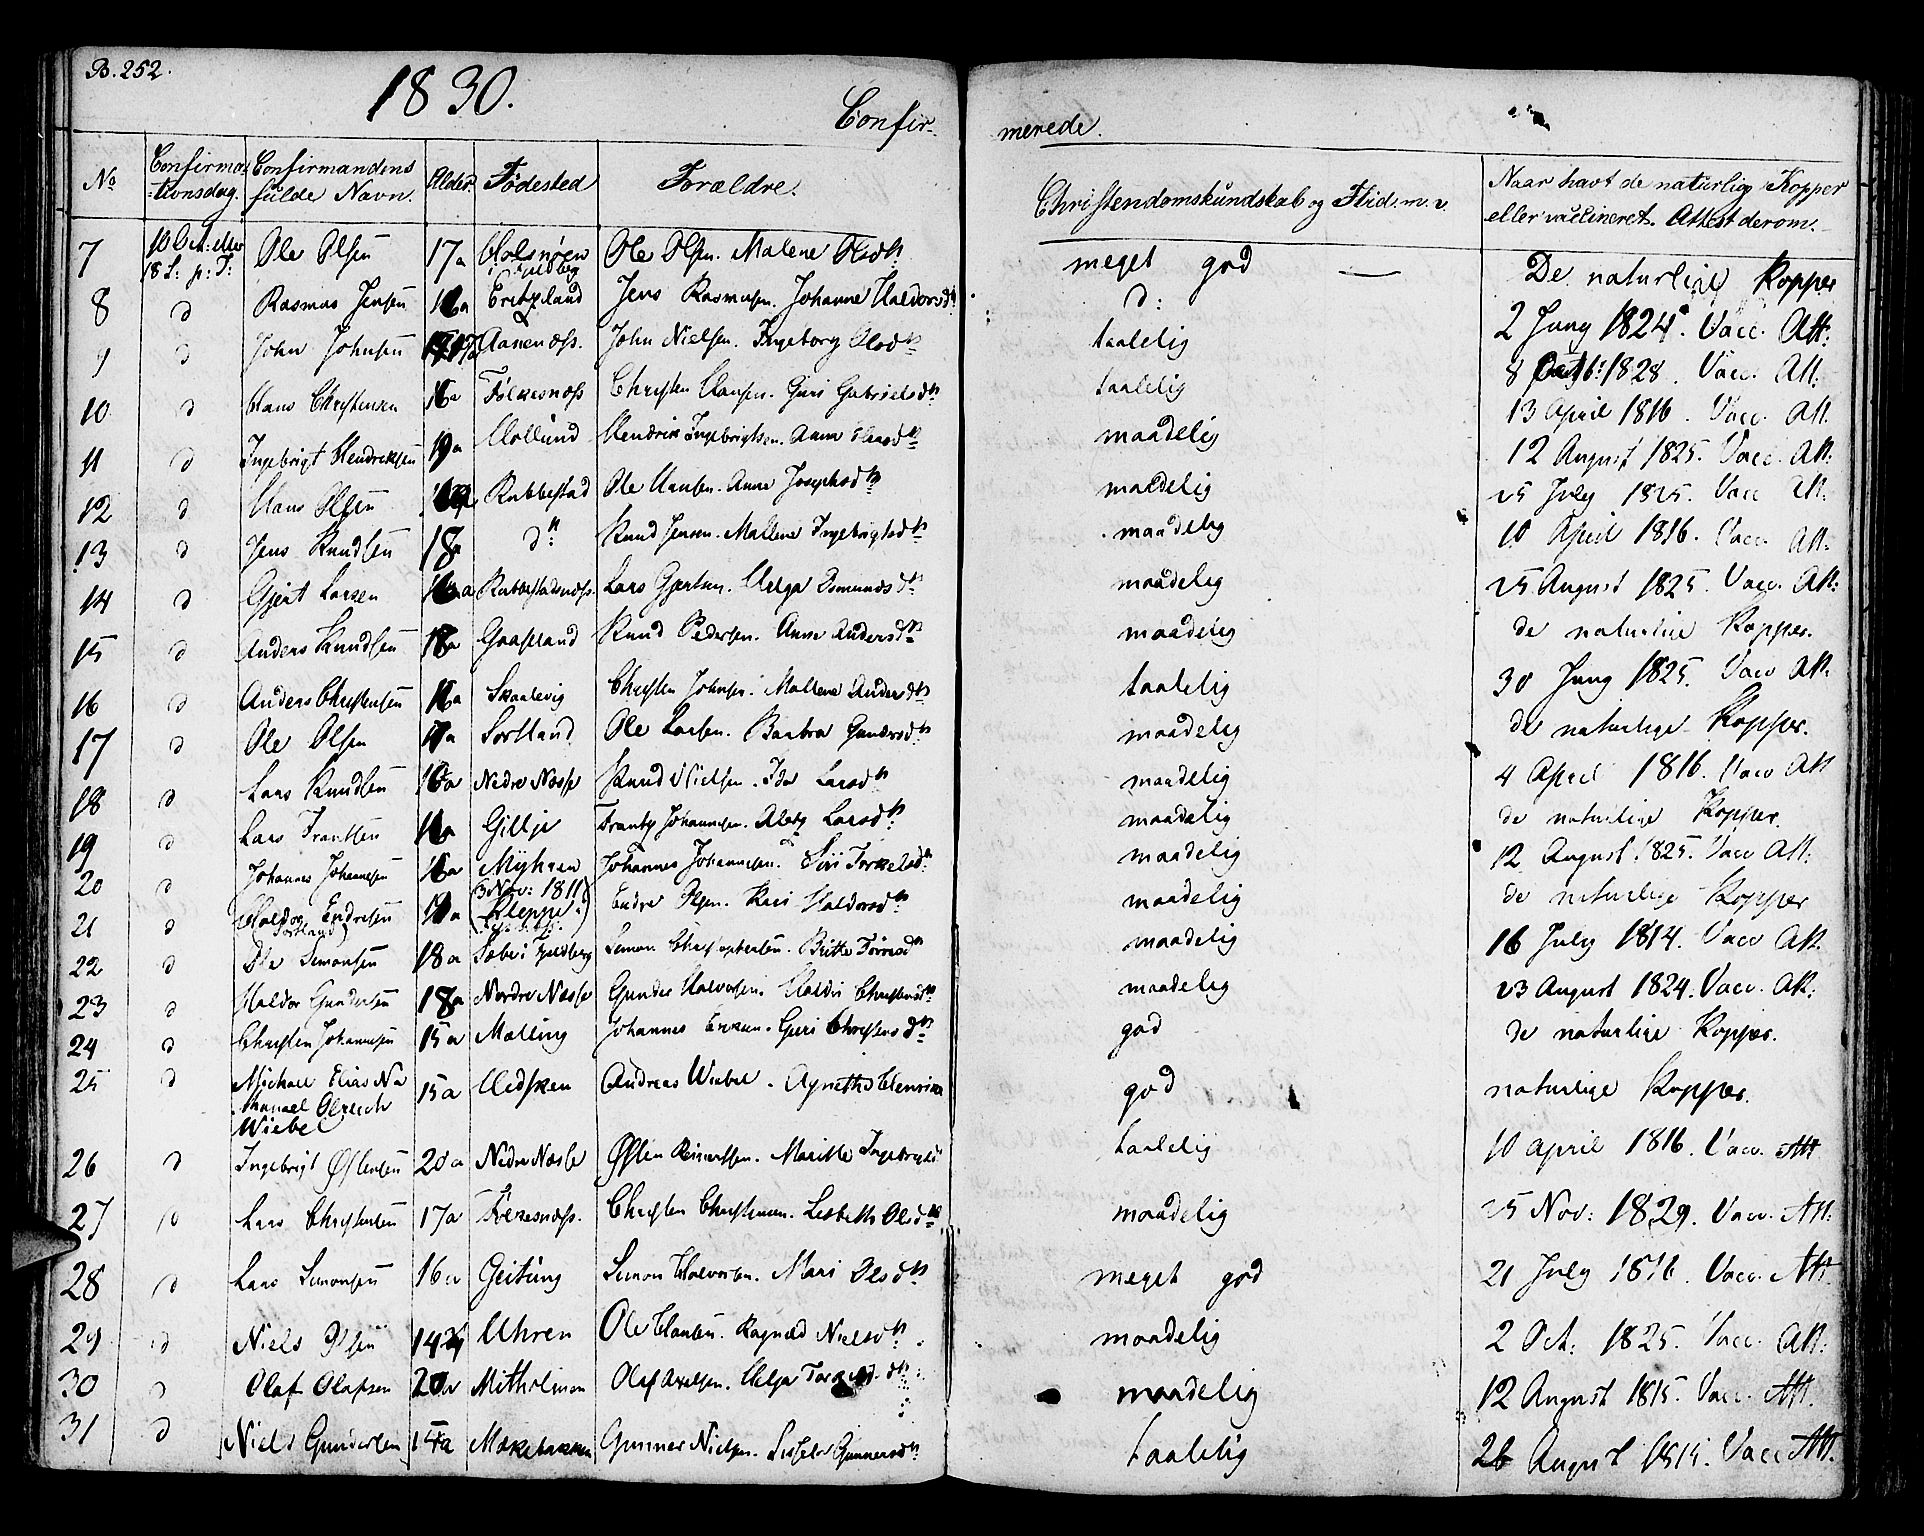 B. 252.
1830.
Confir-
merede.
No Confirma-tionsdag. Confirmandens fulde Navn. Alder. Födested Forældre. Christendomskundskab og Flid m. v. Naar havt de naturlige Kopper eller vaccineret. Attest derom.
7 10 Oct: eller 18 S: p: T: Ole Olsen 17a Ole Olsen. Malene Olsdn meget god — De naturlige Kopper
8 d Rasmus Jensen 16a Jens Rasmusen. Johanne Haldorsdn d: 2 Juny 1824. Vacc. Att:
9 d John Johnsen Aanenæss. John Nielsen. Ingeborg Olsdn taalelig 8 1828. Vacc. Att:
10 d Hans Christensen 16a Föckesnæss Christen Hansen. Guri Gabrielsdn taalelig 13 April 1816. Vacc. Att.
11 d Ingebrigt Hendriksen 19a Hollund Hendrik Ingebrigtsen. Anna Olsdn maadelig 12 August 1825. Vacc. Att:
12 d Hans Olsen Rabbestad Ole Hansen. Anna Josephsdn maadelig 25 July 1825. Vacc Att.
13 d Jens Knudsen 18a dn: Knud Jensen. Mallene Ingebrigtsdn maadelig 10 April 1816. Vacc Att:
14 d Gjert Larsen 16a Rabbestadsnæss. Lars Gjertsen. Helga Osmundsdn maadelig 25 August 1825. Vacc. Att:
15 d Anders Knudsen 18a Gaassand Knud Pedersen. Anna Andersdn maadelig de naturlige Kopper.
16 d Anders Christensen 16a Skaalevig Christen Johnsen. Mallene Andersdn taalelig 30 Juny 1825. Vacc Att.
17 d Ole Olsen 17a Sortland Ole Larsen. Barbra Gundersdn maadelig de naturlige Kopper.
18 d Lars Knudsen 16a Nedre Næsse Knud Nielsen. Ida Larsdn maadelig 4 April 1816. Vacc Att
19 d Lars Frantsen 16a Gillje Frantz Johannesen. Larsdn maadelig de naturlige Kopper.
20 d Johannes Johannesen 16a Myhren Johannes Johannesen. Siri Torkelsdn: maadelig 12 August 1825. Vacc Att:
21 d Haldor Endresen (Sortland) (3 Nov: 1811) Kleppe. Endre Olsen. Kari Haldorsdn maadelig de naturlige Kopper
22 d Ole Simonsen 18a Simon Christophersen. Britta maadelig 16 July 1814. Vacc Att.
23 d Haldor Gundersen 18a Nordre Næsse Gunder Halvorsen. Christensdn maadelig 23 August 1824. Vacc. Att:
24 d Christen Johannesen 15a Malling Johannes Guri Christensdn god de naturlige Kopper.
25 d Michael Elias Na
Wiebel 15a Andreas Wiebel. Agnetha Henrica god naturlige Kopper.
26 d Ingebrigt Östensen 20a Nedre Næsse Östen Reinertsen. Maritha Ingebrigtsd taalelig 10 April 1816. Vacc. Att
27 d Lars Christensen 17a Föckesnæss. Christen Christensen. Lisbeth Olsdn maadelig 25 Nov: 1829. Vacc. Att:
28 d Lars Simonsen 16a Geitung Simon Halvorsen. Mari Olsdn meget god 21 July 1816. Vacc. Att
29 d Niels Olsen Uhren Ole Hansen. Ragnild Nielsdn maadelig 2 Oct: 1825. Vacc. Att:
30 d Olaf Olafsen 20a Mitholmen Helga maadelig 12 August 1815. Vacc. Att.
31 d Niels Gundersen 14a Møkebakken Gunner Nielsen. Gunnersdn taalelig 26 August 1815. Vacc Att.